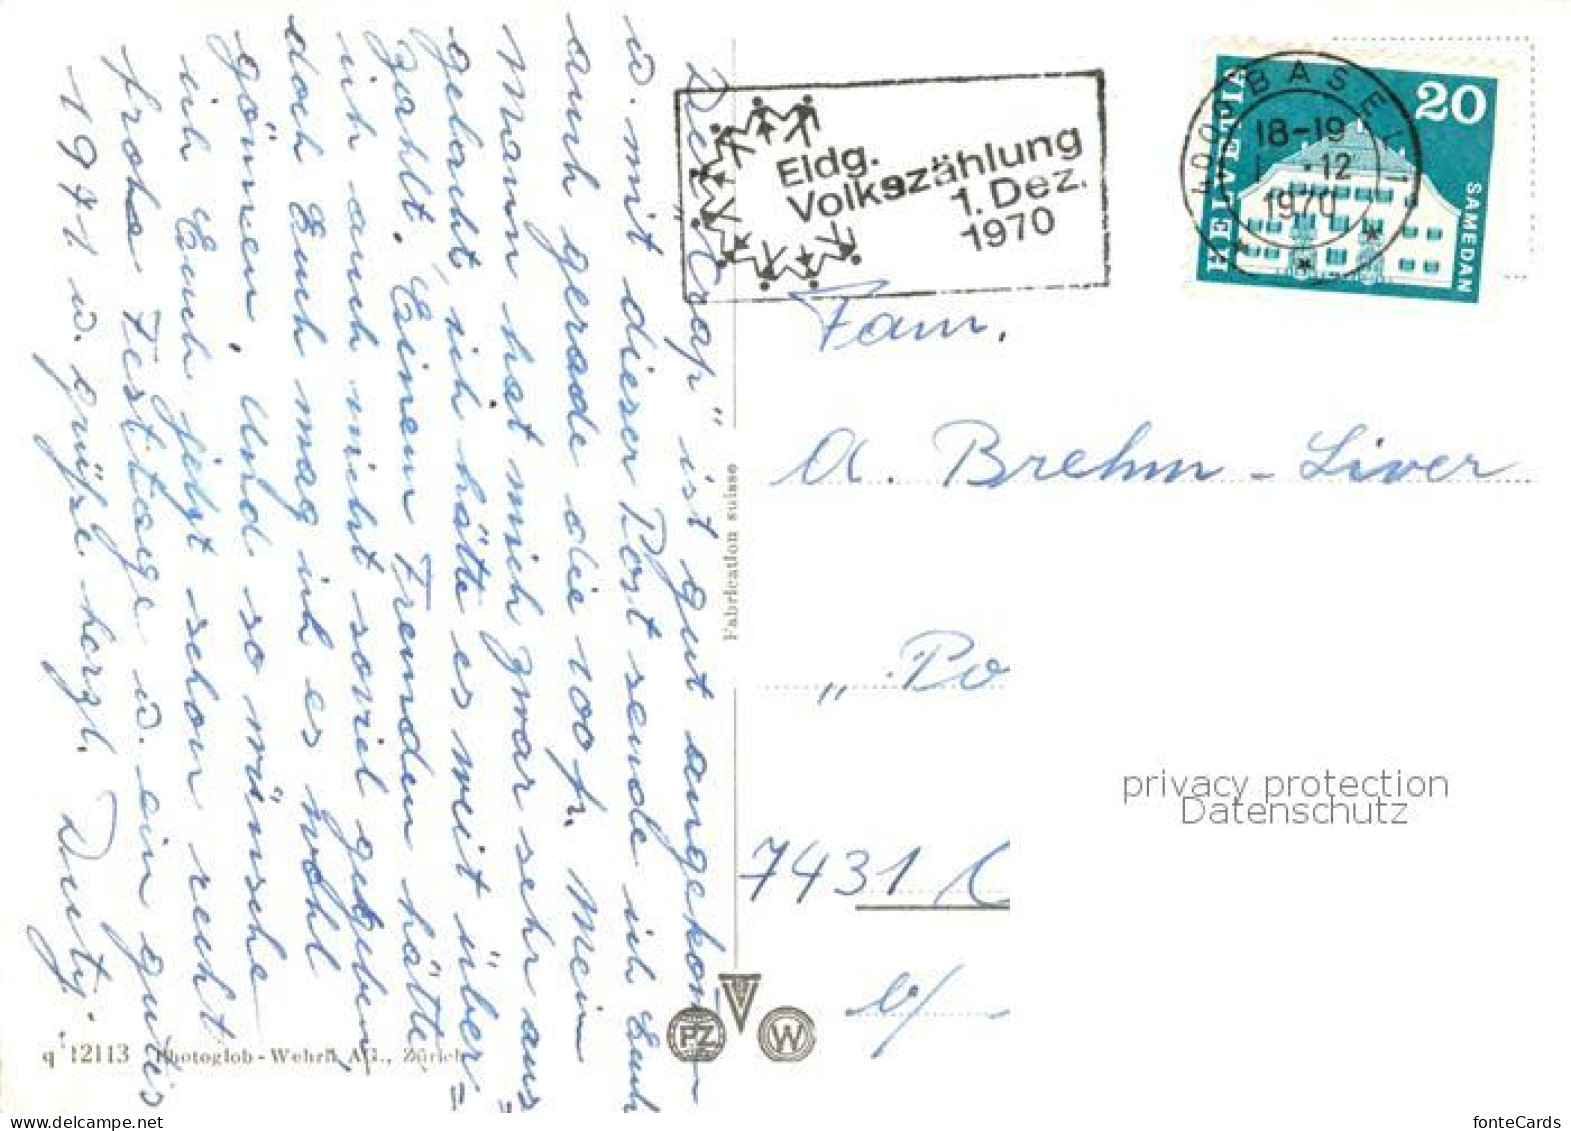 Der "Crap" ist gut angekom-
u. mit dieser Post sende ich Euch
auch gerade die 100 fr. Mein
Mann hat mich zwar sehr aus-
gelacht, ich hätte es weit über=
zahlt. Einem Fremden hätte
ich auch nicht soviel gegeben,
doch Euch mag ich es wohl
gönnen. Und so wünsche
ich Euch jetzt schon recht
frohe Festtage u. ein gutes
1971 u. grüsse herzl.
Fabrication suisse
q 12113 Photoglob-Wehrli AG., Zürich
PZ V W
Eidg.
Volkszählung
1. Dez.
1970
4000 BASEL 1
18-19
1.-.12
1970
HELVETIA
20
SAMEDAN
Fam.
A. Brehm-Liver
"Po
7431
b/
privacy protection
Datenschutz
www.delcampe.net
fonteCards